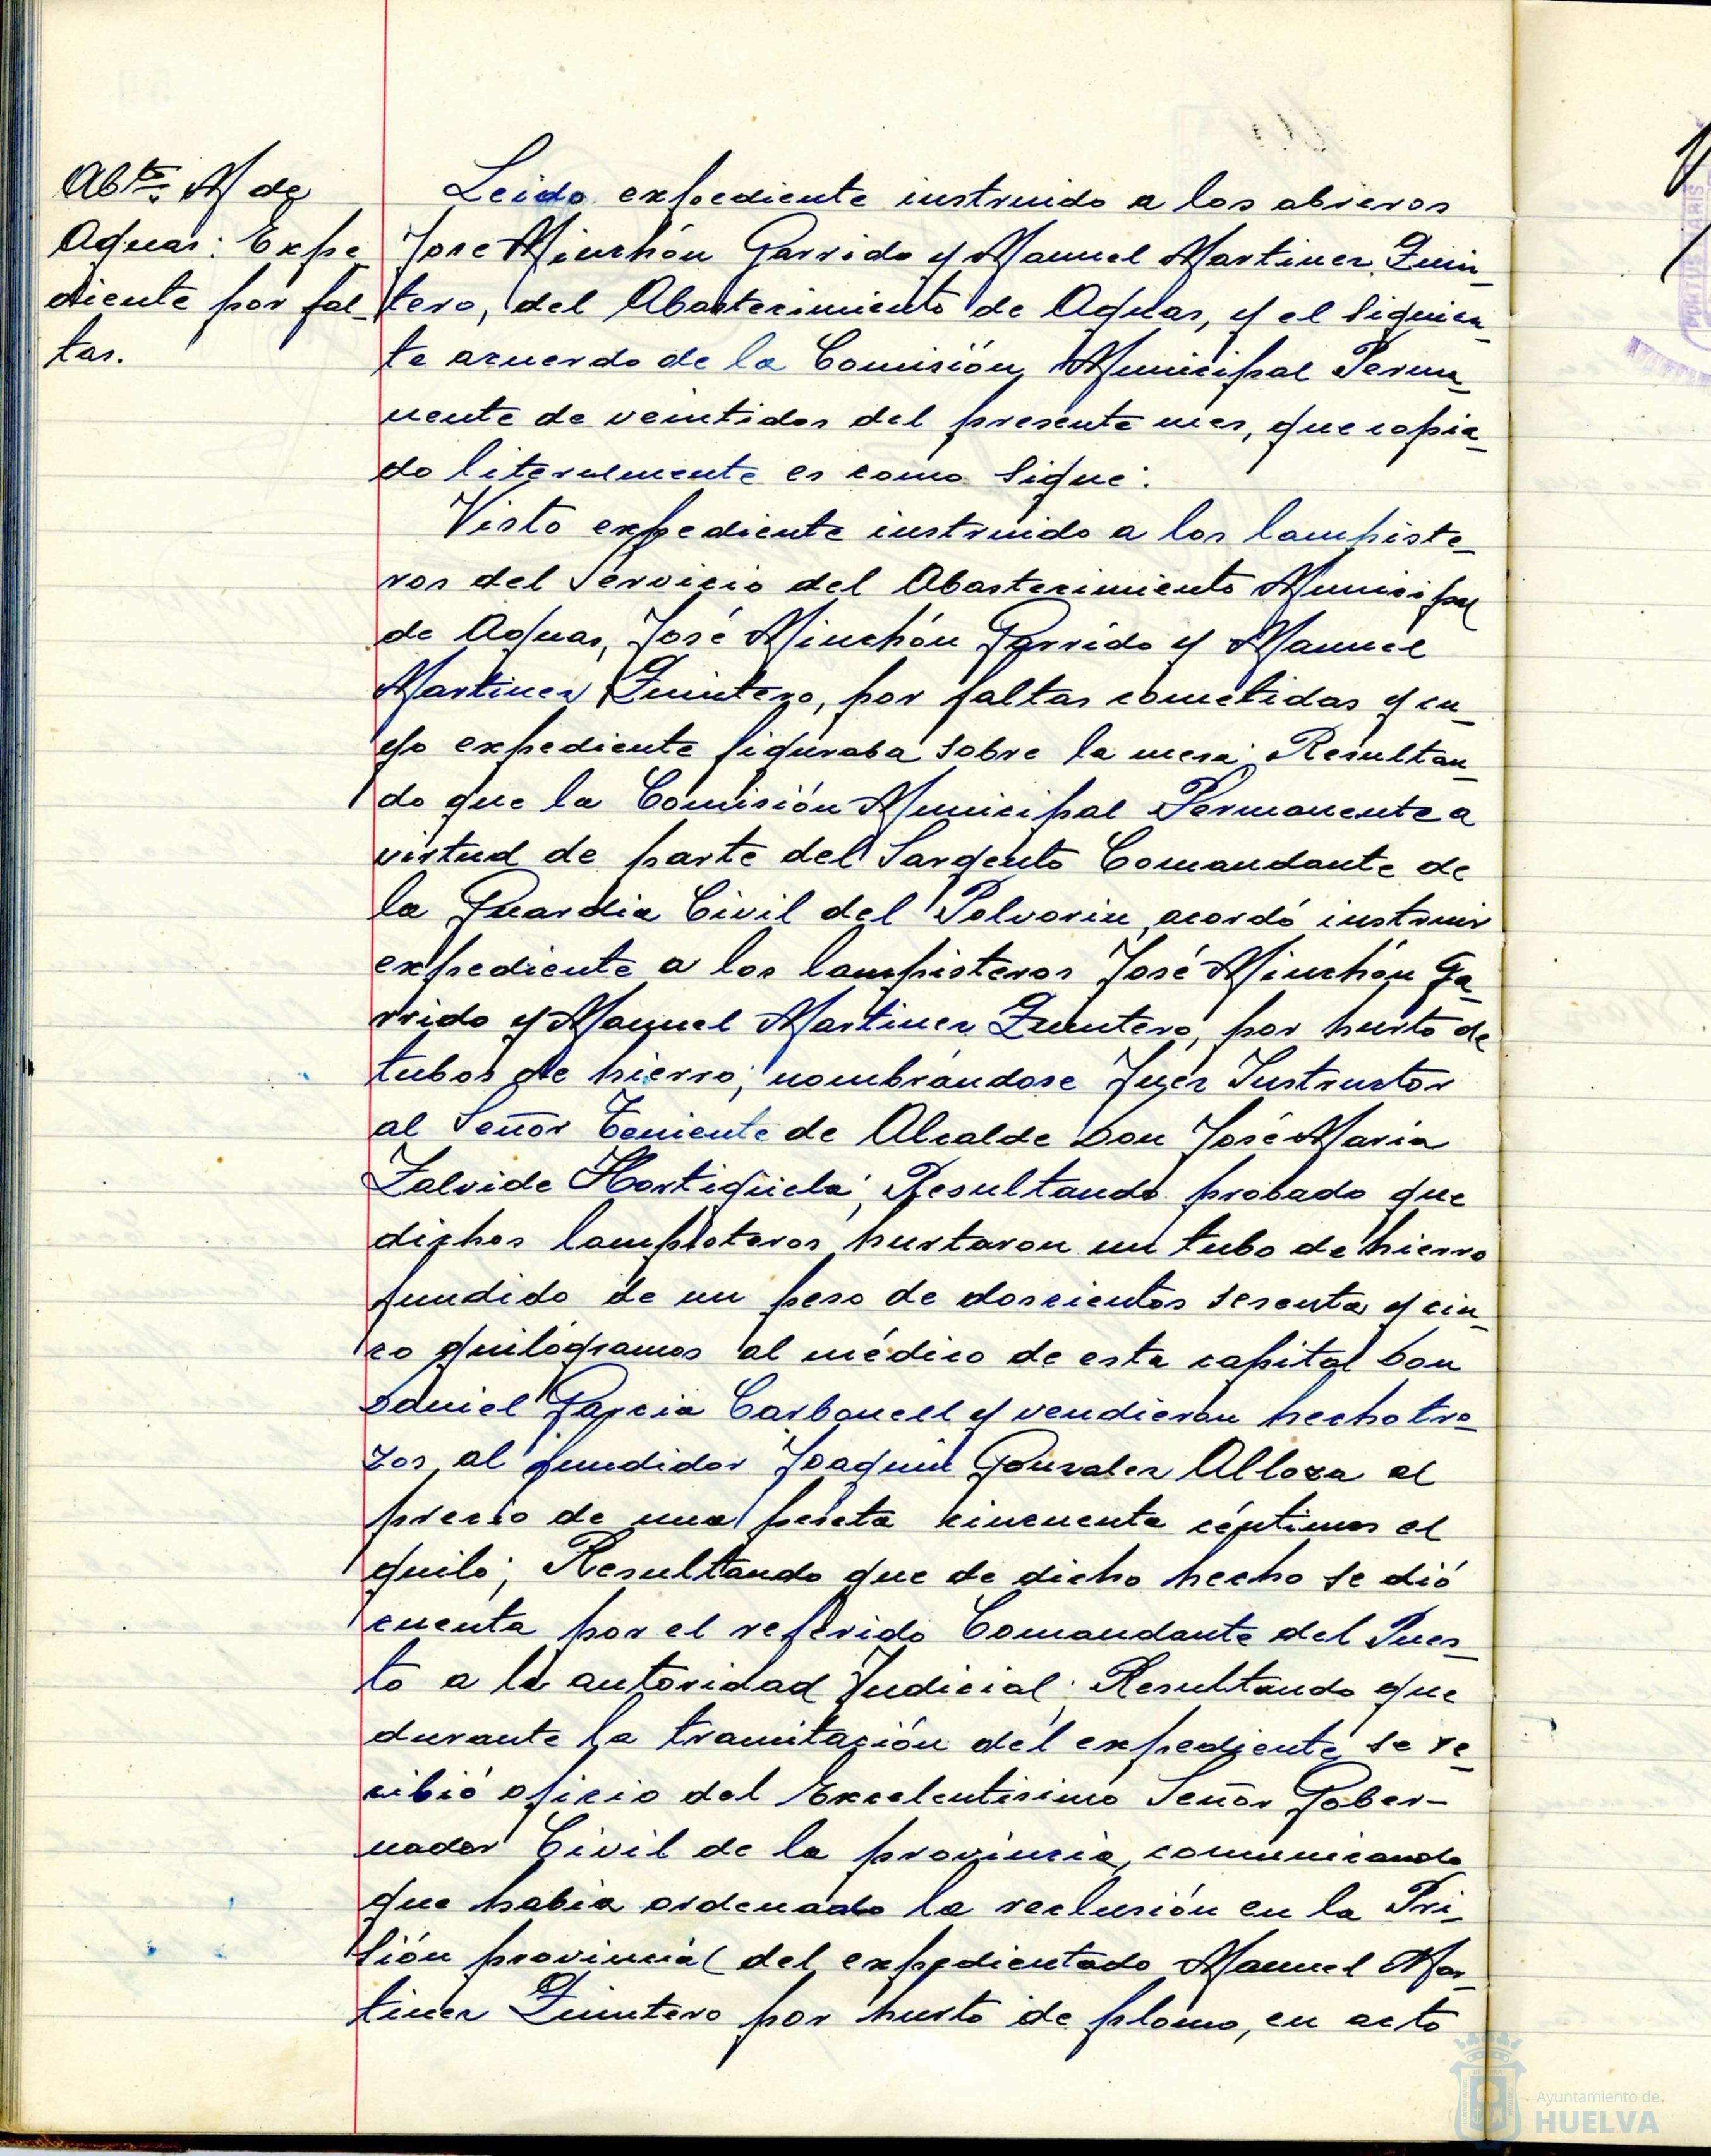 Abtº. M de
Aguas: Expe
diente por fal-
tas.
Leido expediente instruido a los obreros
Jose Minchón Garrido y Manuel Martinez Quin-
tero, del Abastecimiento de Aguas, y el siguien-
te acuerdo de la Comisión Municipal Perma-
nente de veintidos del presente mes, que copia-
do literalmente es como sigue:
Visto expediente instruido a los lampiste-
ros del Servicio del Abastecimiento Municipal
de Aguas, José Minchón Garrido y Manuel
Martinez Quintero, por faltas cometidas y cu-
yo expediente figuraba sobre la mesa; Resultan-
do que la Comisión Municipal Permanente a
virtud de parte del Sargento Comandante de
la Guardia Civil del Polvorin, acordó instruir
expediente a los lampisteros José Minchón Ga-
rrido y Manuel Martinez Quintero, por hurto de
tubos de hierro; nombrándose Juez Instructor
al Señor Teniente de Alcalde Don José Maria
Zalvide Hortigüela; Resultando probado que
dichos lampisteros hurtaron un tubo de hierro
fundido de un peso de doscientos sesenta y cin-
co quilógramos al médico de esta capital Don
Daniel Garcia Carbonell y vendieron hecho tro-
zos, al fundidor Joaquin Gonzalez Alloza al
precio de una peseta cincuenta céntimos el
quilo; Resultando que de dicho hecho se dió
cuenta por el referido Comandante del Pues-
to a la autoridad Judicial; Resultando que
durante la tramitación del expediente se re-
cibió oficio del Excelentisimo Señor Gober-
nador Civil de la provincia, comunicando
que habia ordenado la reclusión en la Pri-
sión provincial del expedientado Manuel Mar-
tinez Quintero por hurto de plomo, en acto
Ayuntamiento de
HUELVA